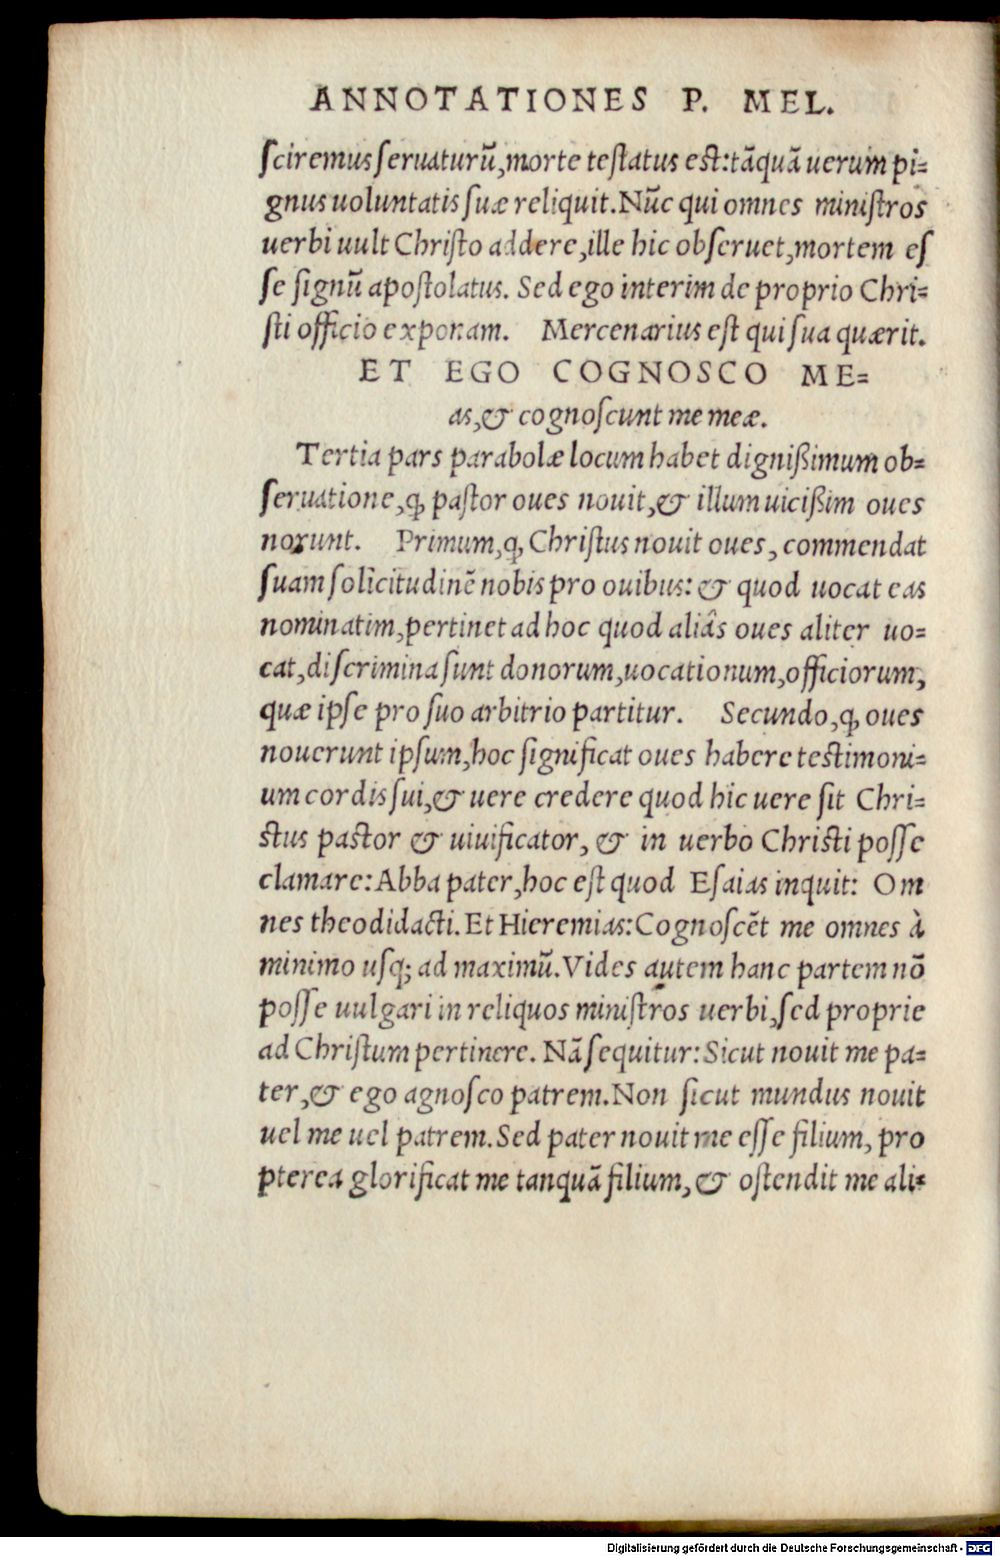 ANNOTATIONES P. MEL.
ſciremus ſeruaturū, morte teſtatus eſt: tāquā uerum pi=
gnus uoluntatis ſuæ reliquit. Nūc qui omnes miniſtros
uerbi uult Chriſto addere, ille hic obſeruet, mortem eſ
ſe ſignū apoſtolatus. Sed ego interim de proprio Chri=
ſti officio exponam. Mercenarius eſt qui ſua quærit.
ET EGO COGNOSCO ME=
as, & cognoſcunt me meæ.
Tertia pars parabolæ locum habet digniſſimum ob=
ſeruatione, ꝙ paſtor oues nouit, & illum uiciſſim oues
norunt. Primum, ꝙ Chriſtus nouit oues, commendat
ſuam ſolicitudinē nobis pro ouibus: & quod uocat eas
nominatim, pertinet ad hoc quod aliâs oues aliter uo=
cat, diſcrimina ſunt donorum, uocationum, officiorum,
quæ ipſe pro ſuo arbitrio partitur. Secundo, ꝙ oues
nouerunt ipſum, hoc ſignificat oues habere teſtimoni=
um cordis ſui, & uere credere quod hic uere ſit Chri=
ſtus paſtor & uiuificator, & in uerbo Chriſti poſſe
clamare: Abba pater, hoc eſt quod Eſaias inquit: Om
nes theodidacti. Et Hieremias: Cognoſcēt me omnes à
minimo uſq; ad maximū. Vides autem hanc partem nō
poſſe uulgari in reliquos miniſtros uerbi, ſed proprie
ad Chriſtum pertinere. Nā ſequitur: Sicut nouit me pa=
ter, & ego agnoſco patrem. Non ſicut mundus nouit
uel me uel patrem. Sed pater nouit me eſſe filium, pro
pterea glorificat me tanquā filium, & oſtendit me ali=
Digitalisierung gefördert durch die Deutsche Forschungsgemeinschaft - DFG